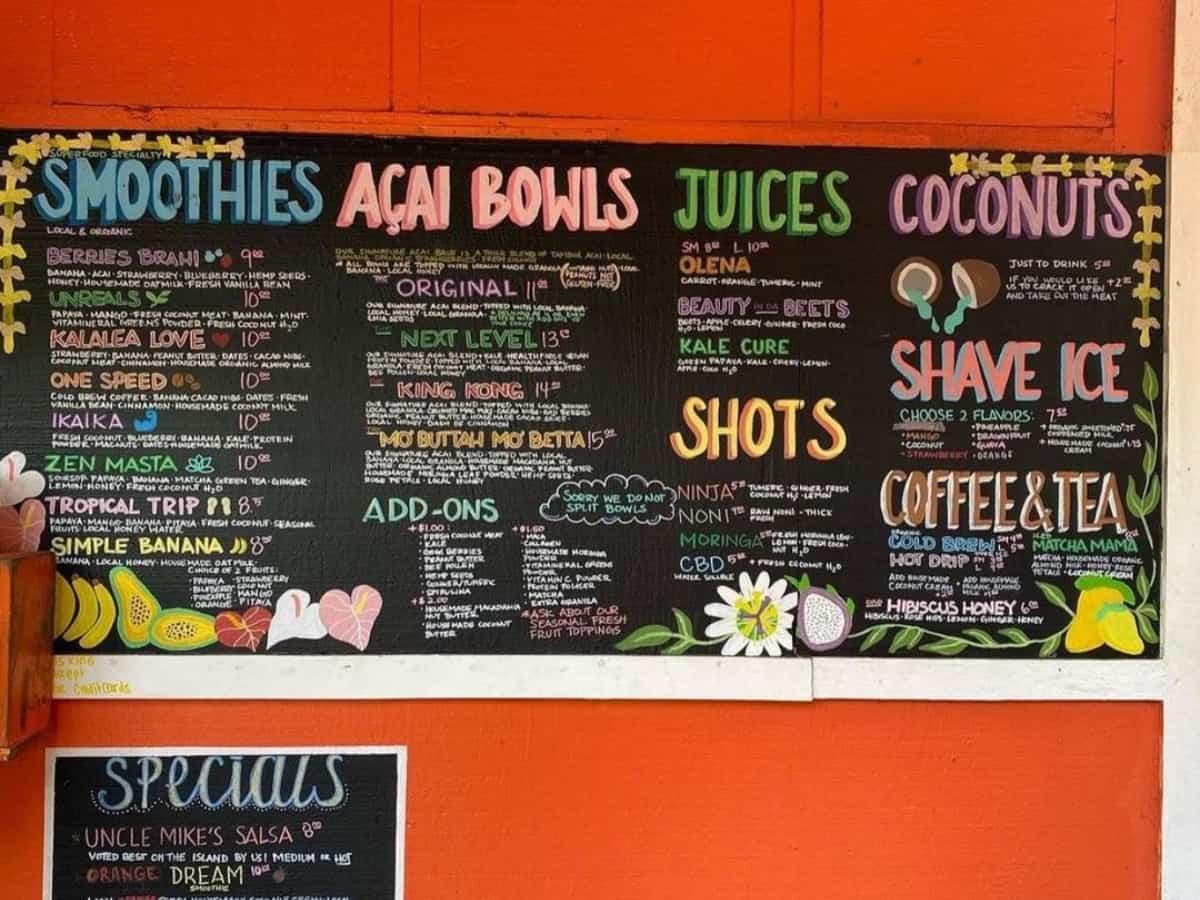 SUPERFOOD SPECIALTY
SMOOTHIES
LOCAL & ORGANIC
BERRIES BRAH! 9⁰⁰
BANANA·ACAI·STRAWBERRY·BLUEBERRY·HEMP SEEDS·
HONEY·HOUSEMADE OATMILK·FRESH VANILLA BEAN
UNREALS 10⁰⁰
PAPAYA·MANGO·FRESH COCONUT MEAT·BANANA·MINT·
VITAMINERAL GREENS POWDER·FRESH COCONUT H₂O
KALALEA LOVE 10⁰⁰
STRAWBERRY·BANANA·PEANUT BUTTER·DATES·CACAO NIBS·
COCONUT MEAT·CINNAMON·HOUSEMADE ORGANIC ALMOND MILK
ONE SPEED 10⁰⁰
COLD BREW COFFEE·BANANA·CACAO NIBS·DATES·FRESH
VANILLA BEAN·CINNAMON·HOUSEMADE COCONUT MILK
IKAIKA 10⁰⁰
FRESH COCONUT·BLUEBERRY·BANANA·KALE·PROTEIN
POWDER·MACNUTS·DATES·HOUSEMADE OATMILK
ZEN MASTA 10⁰⁰
SOURSOP·PAPAYA·BANANA·MATCHA GREEN TEA·GINGER·
LEMON·HONEY·FRESH COCONUT H₂O
TROPICAL TRIP 8.⁷⁵
PAPAYA·MANGO·BANANA·PITAYA·FRESH COCONUT·SEASONAL
FRUITS·LOCAL HONEY·WATER
SIMPLE BANANA 8⁰⁰
BANANA·LOCAL HONEY·HOUSEMADE OATMILK·
CHOICE OF 2 FRUITS:
·PAPAYA ·STRAWBERRY
·BLUEBERRY ·COCONUT
·PINEAPPLE ·MANGO
·ORANGE ·PITAYA
AÇAI BOWLS
OUR SIGNATURE ACAI BASE IS A THICK BLEND OF
ALL BOWLS ARE TOPPED WITH VEGAN MADE GRANOLA
BANANA·LOCAL HONEY
THE ORIGINAL 11⁰⁰
OUR SIGNATURE ACAI BLEND·TOPPED WITH LOCAL BANANA·
LOCAL HONEY·LOCAL GRANOLA·
CHIA SEEDS
THE NEXT LEVEL 13⁰⁰
OUR SIGNATURE ACAI BLEND·KALE·HEALTHFORCE VEGAN
PROTEIN POWDER·TOPPED WITH LOCAL BANANA·LOCAL
GRANOLA·FRESH COCONUT MEAT·ORGANIC PEANUT BUTTER·
BEE POLLEN·LOCAL HONEY
THE KING KONG 14⁰⁰
OUR SIGNATURE ACAI BLEND·TOPPED WITH LOCAL BANANA·
LOCAL GRANOLA·CRUSHED MAC NUTS·CACAO NIBS·GOJI BERRIES
ORGANIC PEANUT BUTTER·HOUSEMADE CACAO SAUCE·
LOCAL HONEY·DASH OF CINNAMON
THE MO' BUTTAH MO' BETTA 15⁰⁰
OUR SIGNATURE ACAI BLEND·TOPPED WITH LOCAL
BANANA·LOCAL GRANOLA·HOUSEMADE MACADAMIA NUT
BUTTER·ORGANIC ALMOND BUTTER·ORGANIC PEANUT BUTTER·
HOUSEMADE MORINGA LEAF POWDER·HEMP SEEDS·
ROSE PETALS·LOCAL HONEY
SORRY WE DO NOT
SPLIT BOWLS
ADD-ONS
+$1.00:
·FRESH COCONUT MEAT
·KALE
·GOJI BERRIES
·PEANUT BUTTER
·BEE POLLEN
·HEMP SEEDS
·GINGER/TUMERIC
·SPIRULINA
+$2.00
·HOUSEMADE MACADAMIA
NUT BUTTER
·HOUSEMADE COCONUT
BUTTER
+$1.50
·MACA
·COLLAGEN
·HOUSEMADE MORINGA
POWDER
·VITAMINERAL GREENS
POWDER
·VITAMIN C POWDER
·PROTEIN POWDER
·MATCHA
·EXTRA GRANOLA
*ASK ABOUT OUR
SEASONAL FRESH
FRUIT TOPPINGS
JUICES
SM 8⁰⁰ L 10⁰⁰
OLENA
CARROT·ORANGE·TUMERIC·MINT
BEAUTY IN DA BEETS
BEETS·APPLE·CELERY·GINGER·FRESH COCO
H₂O·LEMON
KALE CURE
GREEN PAPAYA·KALE·CELERY·LEMON·
APPLE·COCO H₂O
SHOTS
NINJA 5⁰⁰ TUMERIC·GINGER·FRESH
COCONUT H₂O·LEMON
NONI RAW NONI·THICK
FRESH
MORINGA FRESH MORINGA LEAF·
LEMON·FRESH COCO-
NUT H₂O
CBD 5⁰⁰ + FRESH COCONUT H₂O
WATER SOLUBLE
COCONUTS
JUST TO DRINK 5⁰⁰
IF YOU WOULD LIKE
US TO CRACK IT OPEN +2⁰⁰
AND TAKE OUT THE MEAT
SHAVE ICE
CHOOSE 2 FLAVORS: 7⁵⁰
·MANGO
·COCONUT
·STRAWBERRY
·PINEAPPLE
·DRAGONFRUIT
·GUAVA
·ORANGE
+ ORGANIC SWEETENED .75
CONDENSED MILK
+ HOUSEMADE COCONUT 1.75
CREAM
COFFEE & TEA
ORGANIC
COLD BREW
HOT DRIP
ADD HOUSEMADE
COCONUT CREAM
ADD HOUSEMADE
ORGANIC ALMOND
MILK
ICED
MATCHA MAMA
MATCHA·HOUSEMADE ORGANIC
ALMOND MILK·HONEY·ROSE
PETALS·COCONUT CREAM
HIBISCUS HONEY 6⁰⁰
HIBISCUS·ROSE HIPS·LEMON·GINGER·HONEY
Creditcards
SPECIALS
UNCLE MIKE'S SALSA 8⁰⁰
VOTED BEST ON THE ISLAND BY US! MEDIUM OR HOT
ORANGE DREAM 10⁰⁰
SMOOTHIE